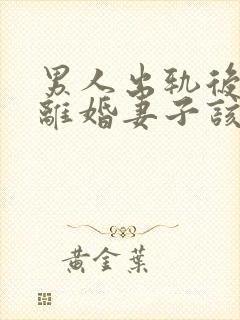 男人出轨後
離婚妻子該
黃金葉